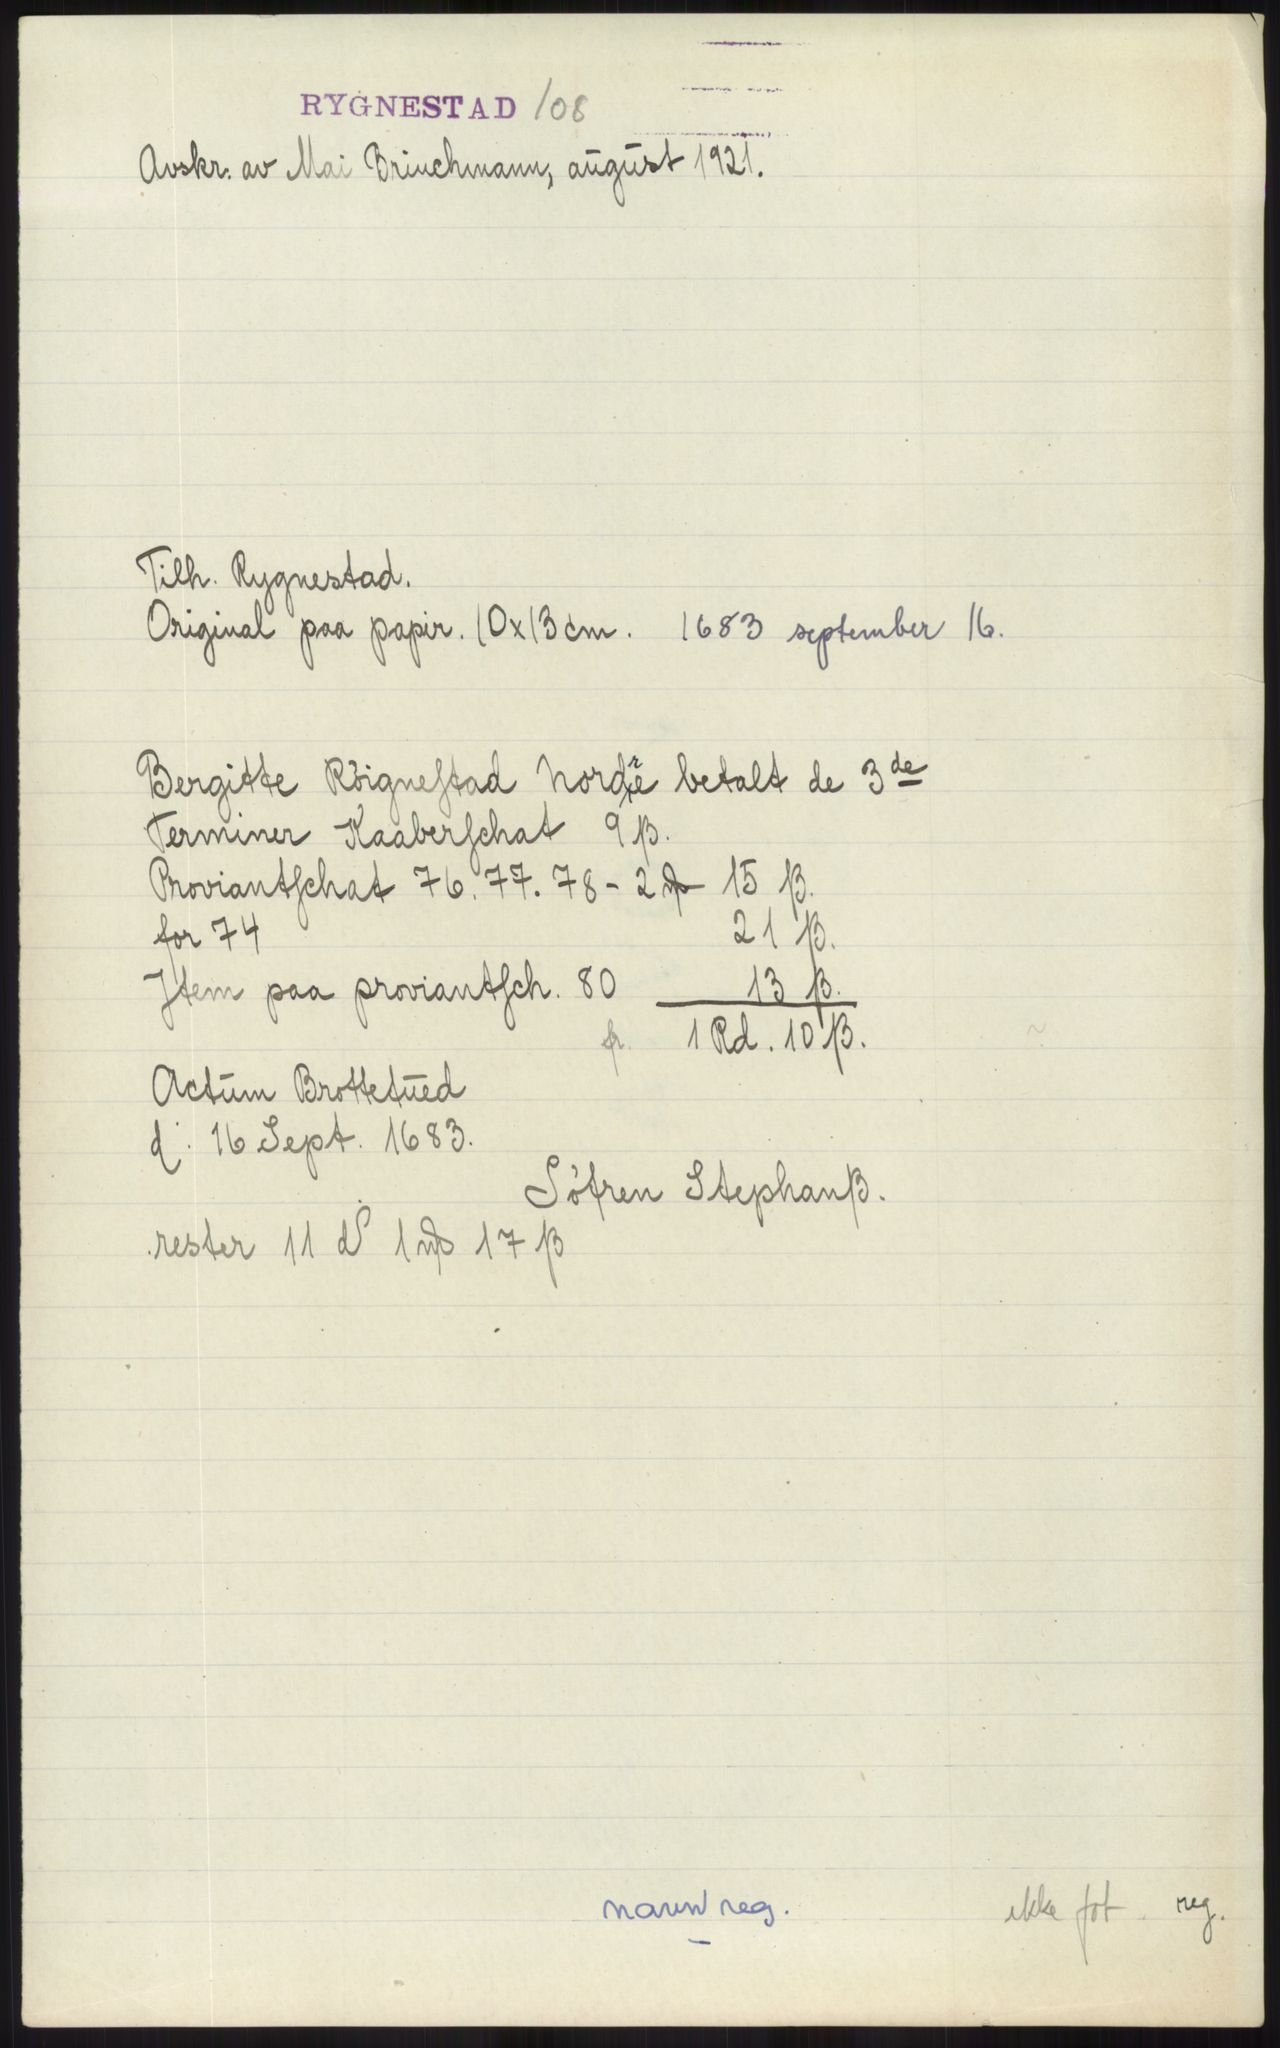 RYGNESTAD 108
Avskr. av Mai Brinchmann, august 1921.
Tilh. Rygnestad.
Original paa papir. 10x13 cm. 1683 september 16.
Bergitte Röignestad betalt de 3de
Terminer Kaaberschat 9 ß.
Proviantschat 76. 77. 78 - 2 15 ß.
for 74 21 ß.
Item paa proviantsch. 80 13 ß.
1 Rd. 10 ß.
Actum Brottetued
d. 16 Sept. 1683.
Söfren Stephanß.
rester 11 1 17 ß
navn reg.
ikke fot. reg.